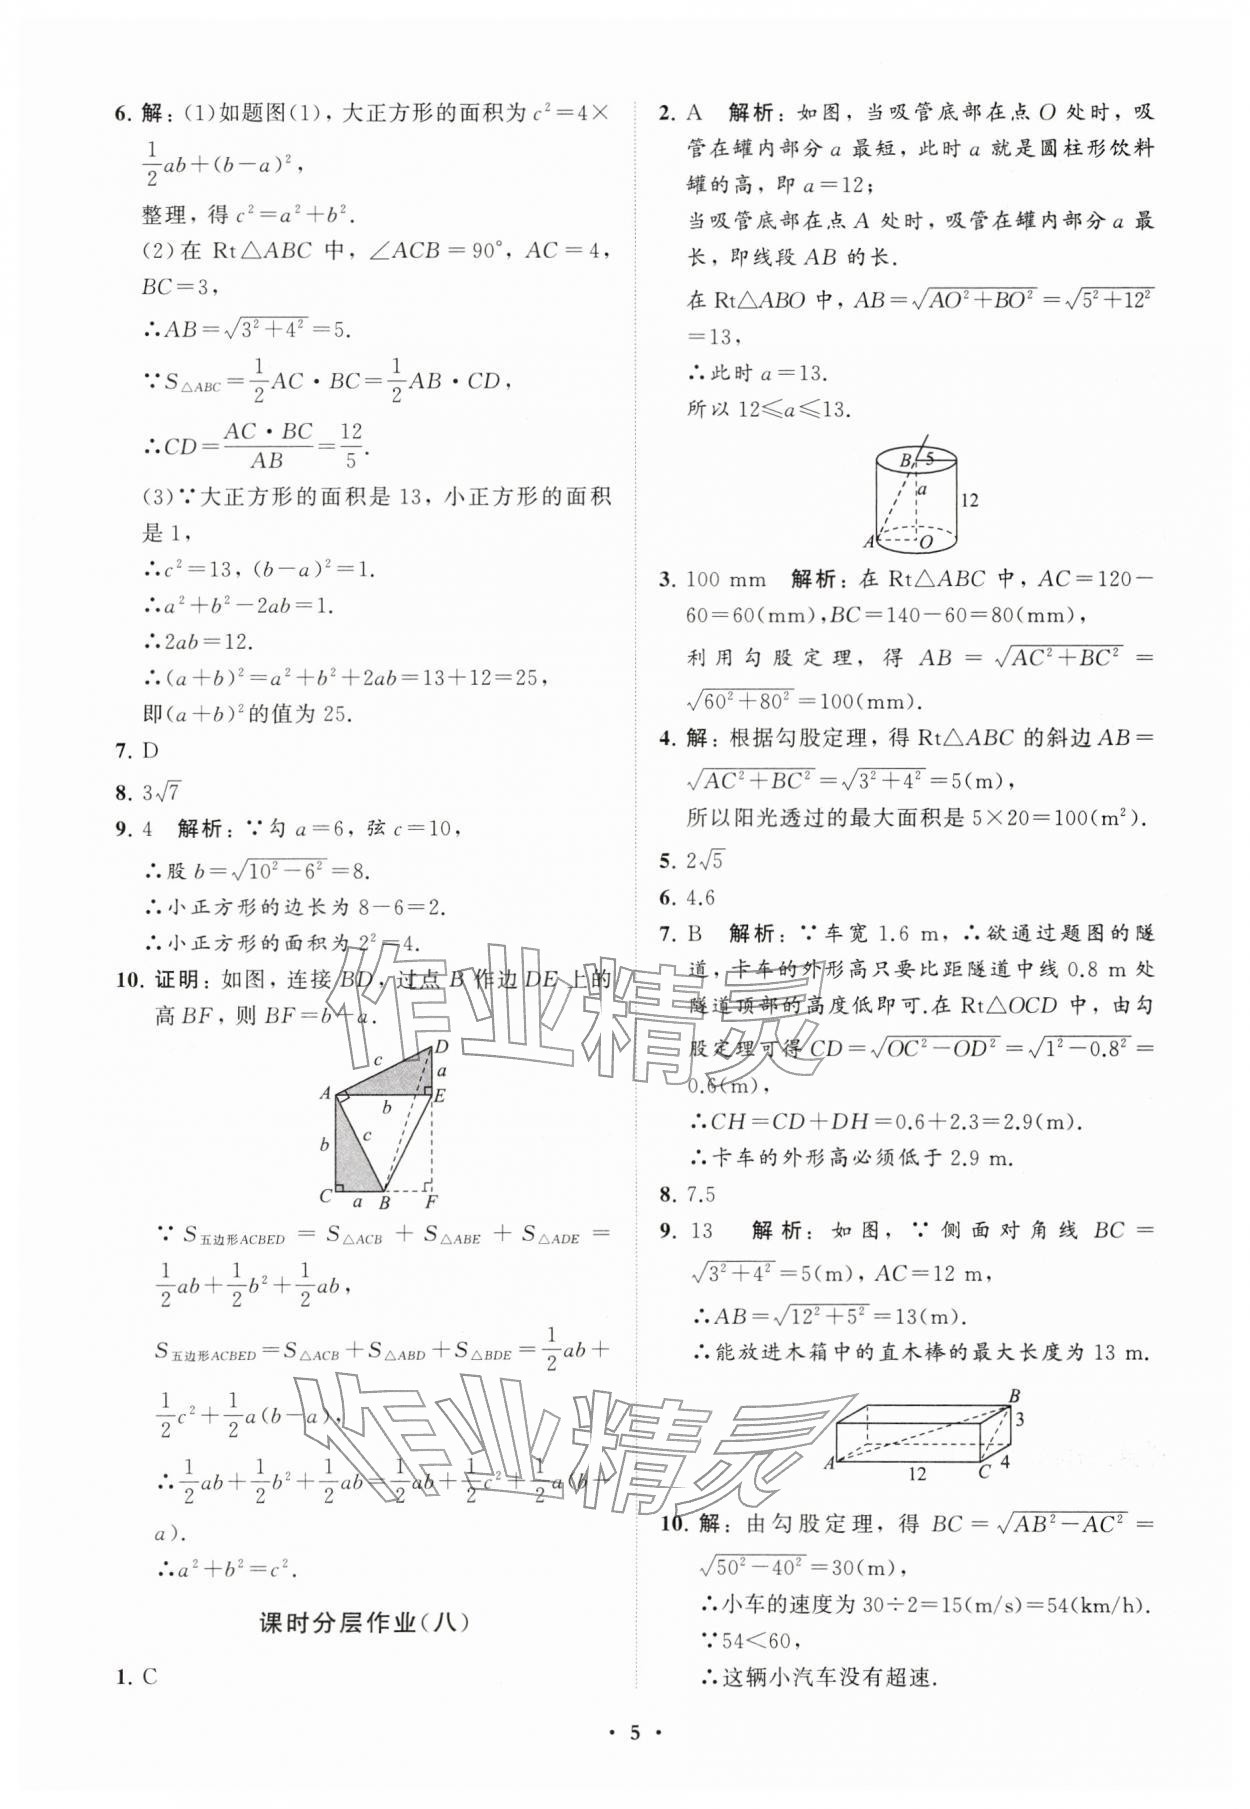 6. 解：(1)如题图(1)，大正方形的面积为c²=4×
1/2ab+(b-a)²，
整理，得c²=a²+b².
(2)在 Rt△ABC 中，∠ACB=90°，AC=4，
BC=3，
∴AB=√(3²+4²)=5.
∵S△ABC=1/2AC·BC=1/2AB·CD，
∴CD=AC·BC/AB=12/5.
(3)∵大正方形的面积是13，小正方形的面积
是1，
∴c²=13，(b-a)²=1.
∴a²+b²-2ab=1.
∴2ab=12.
∴(a+b)²=a²+b²+2ab=13+12=25，
即(a+b)²的值为25.
7. D
8. 3√7
9. 4 解析：∵勾a=6，弦c=10，
∴股b=√(10²-6²)=8.
∴小正方形的边长为8-6=2.
∴小正方形的面积为2²=4.
10. 证明：如图，连接BD，过点B作边DE上的
高BF，则BF=b-a.
D
c
a
A
b
E
b
c
C
a
B
F
∵S五边形ACBED=S△ACB+S△ABE+S△ADE=
1/2ab+1/2b²+1/2ab，
S五边形ACBED=S△ACB+S△ABD+S△BDE=1/2ab+
1/2c²+1/2a(b-a)，
∴1/2ab+1/2b²+1/2ab=1/2ab+1/2c²+1/2a(b-
a).
∴a²+b²=c².
课时分层作业(八)
1. C
2. A 解析：如图，当吸管底部在点O处时，吸
管在罐内部分a最短，此时a就是圆柱形饮料
罐的高，即a=12；
当吸管底部在点A处时，吸管在罐内部分a最
长，即线段AB的长.
在Rt△ABO中，AB=√(AO²+BO²)=√(5²+12²)
=13，
∴此时a=13.
所以12≤a≤13.
B
5
a
12
A
O
3. 100 mm 解析：在Rt△ABC中，AC=120-
60=60(mm),BC=140-60=80(mm)，
利用勾股定理，得AB=√(AC²+BC²)=
√(60²+80²)=100(mm).
4. 解：根据勾股定理，得Rt△ABC的斜边AB=
√(AC²+BC²)=√(3²+4²)=5(m)，
所以阳光透过的最大面积是5×20=100(m²).
5. 2√5
6. 4.6
7. B 解析：∵车宽1.6 m，∴欲通过题图的隧
道，卡车的外形高只要比距隧道中线0.8 m处
隧道顶部的高度低即可.在Rt△OCD中，由勾
股定理可得CD=√(OC²-OD²)=√(1²-0.8²)=
0.6(m)，
∴CH=CD+DH=0.6+2.3=2.9(m).
∴卡车的外形高必须低于2.9 m.
8. 7.5
9. 13 解析：如图，∵侧面对角线BC=
√(3²+4²)=5(m)，AC=12 m，
∴AB=√(12²+5²)=13(m).
∴能放进木箱中的直木棒的最大长度为13 m.
B
3
A
12
C
4
10. 解：由勾股定理，得BC=√(AB²-AC²)=
√(50²-40²)=30(m)，
∴小车的速度为30÷2=15(m/s)=54(km/h).
∵54<60，
∴这辆小汽车没有超速.
作业精灵
作业精灵
· 5 ·